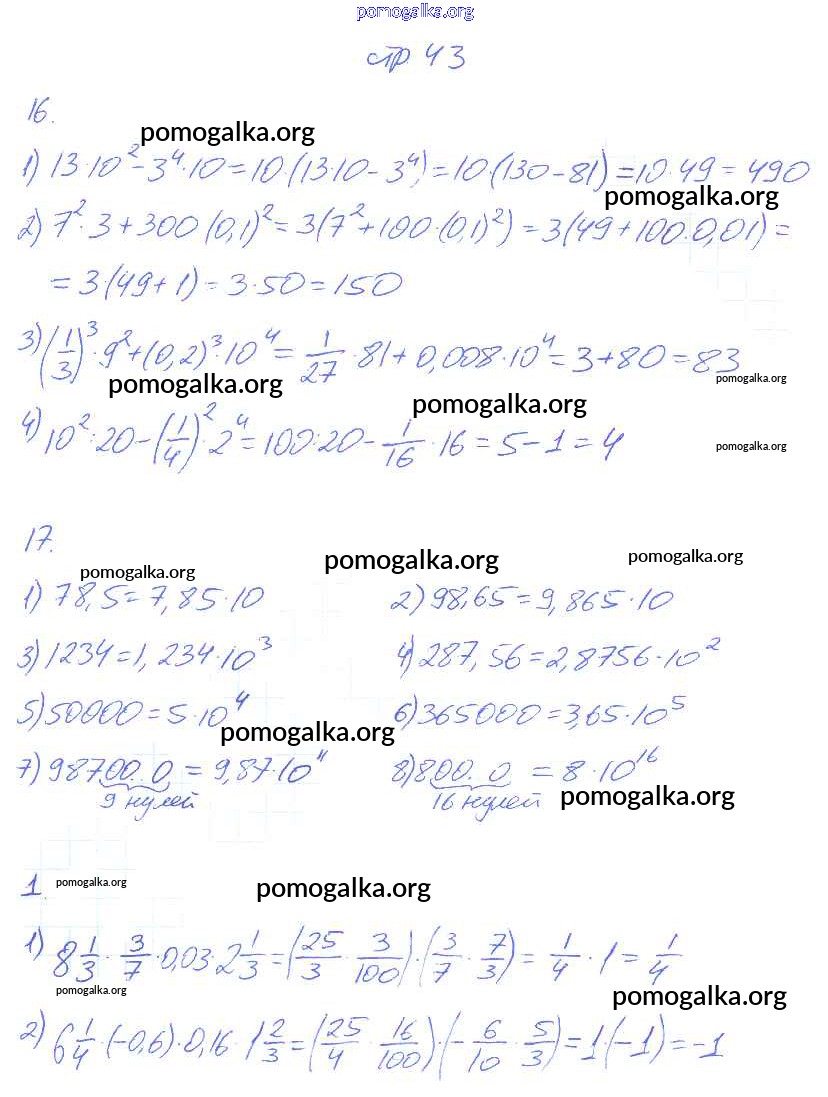 pomogalka.org
стр 43
16.
pomogalka.org
1) 13·10² - 3⁴·10 = 10·(13·10 - 3⁴) = 10·(130 - 81) = 10·49 = 490
pomogalka.org
2) 7²·3 + 300·(0,1)² = 3(7² + 100·(0,1)²) = 3(49 + 100·0,01) =
= 3·(49 + 1) = 3·50 = 150
3) (1/3)³·9² + (0,2)³·10⁴ = 1/27 · 81 + 0,008·10⁴ = 3 + 80 = 83
pomogalka.org pomogalka.org
pomogalka.org
4) 10²:20 - (1/4)²·2⁴ = 100:20 - 1/16 · 16 = 5 - 1 = 4
pomogalka.org
17.
pomogalka.org pomogalka.org pomogalka.org
1) 78,5 = 7,85·10 2) 98,65 = 9,865·10
3) 1234 = 1,234·10³ 4) 287,56 = 2,8756·10²
5) 50000 = 5·10⁴ 6) 365000 = 3,65·10⁵
pomogalka.org
7) 98700..0 = 9,87·10¹¹ 8) 800..0 = 8·10¹⁶
9 нулей 16 нулей pomogalka.org
1 pomogalka.org pomogalka.org
1) 8 1/3 · 3/7 · 0,03 · 2 1/3 = (25/3 · 3/100)·(3/7 · 7/3) = 1/4 · 1 = 1/4
pomogalka.org pomogalka.org
2) 6 1/4 · (-0,6) · 0,16 · 1 2/3 = (25/4 · 16/100)·(- 6/10 · 5/3) = 1·(-1) = -1